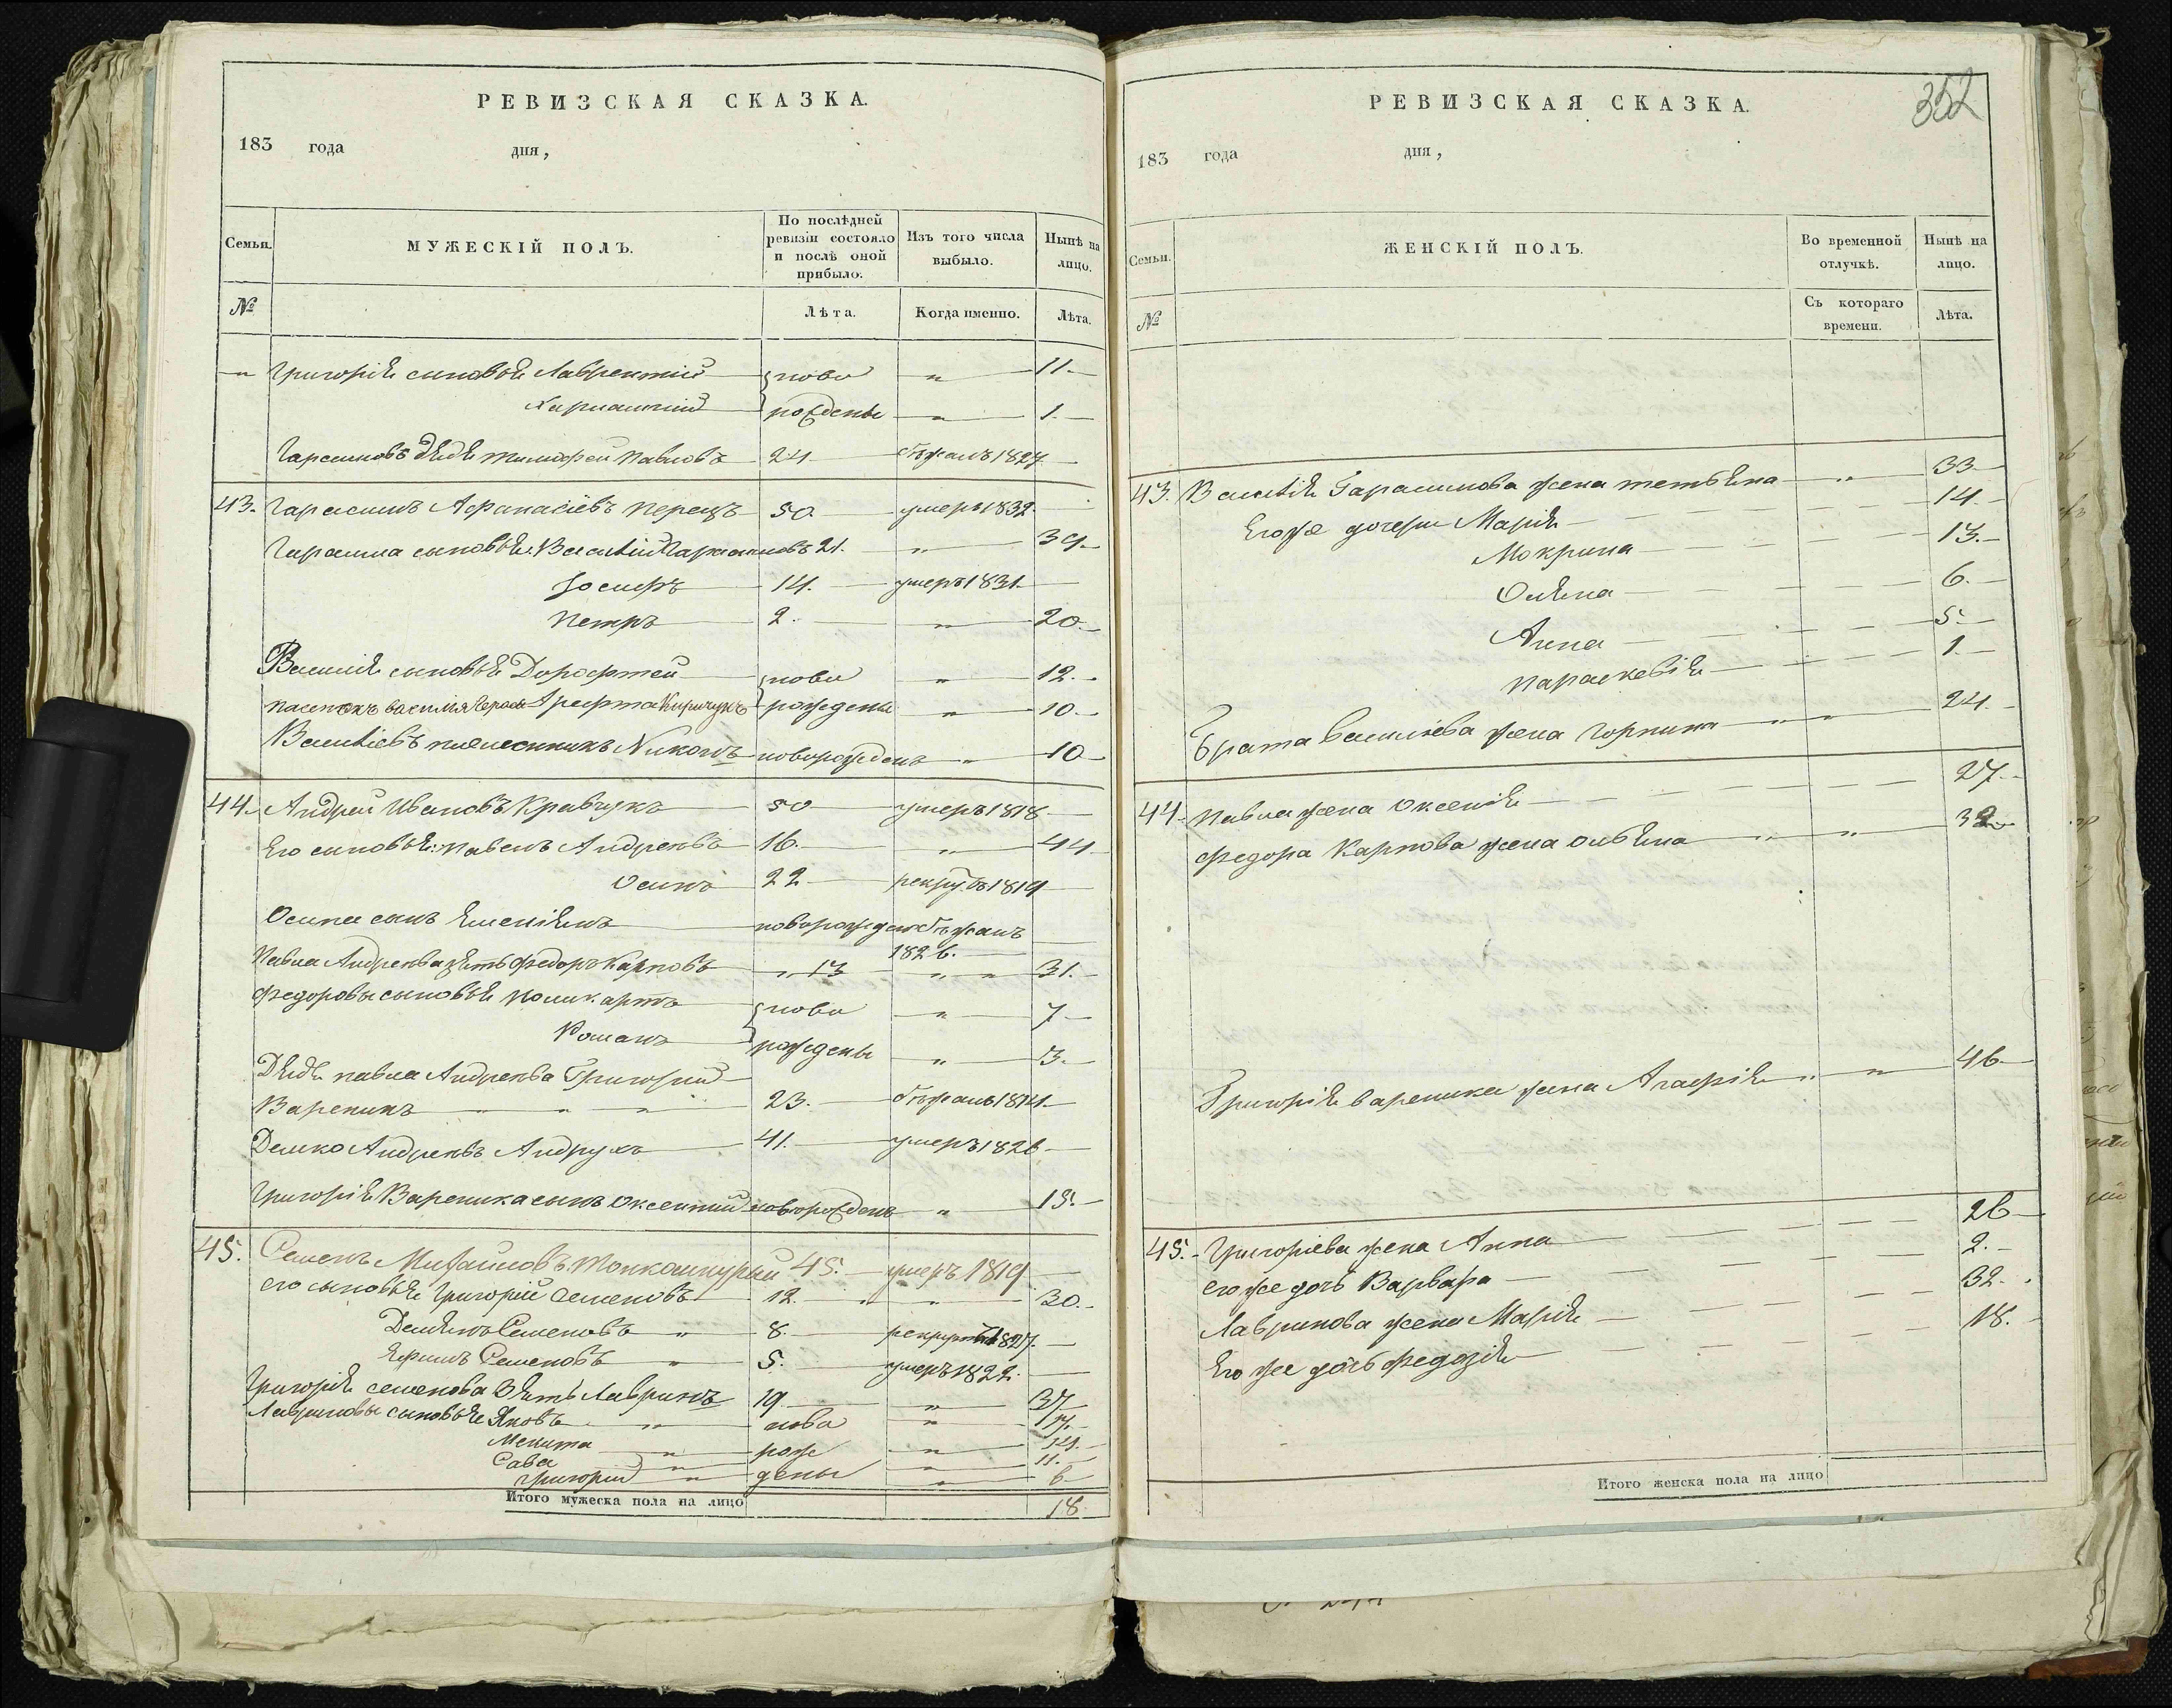 РЕВИЗСКАЯ СКАЗКА.
183 года дня,
Семьи. МУЖЕСКІЙ ПОЛЪ. По послѣдней ревизіи состояло и послѣ оной прибыло. Изъ того числа выбыло. Нынѣ на лицо.
№ Лѣта. Когда именно. Лѣта.
" Григорія сыновья Лаврентій ново " 11.
Харлампій рождены " 1.
Гарасимовъ дядя Тимофей Павловъ 24 бѣжалъ 1827
43. Гарасимъ Афанасіевъ Перецъ 50 умеръ 1832
Гарасима сыновья: Василій Гарасимовъ 21. " 39.
Іосифъ 14. умеръ 1831
Петръ 2. " 20.
Василія сыновья Дорофтей ново " 12.
пасенокъ василія Арефта Киричукъ рождены " 10.
Василіевъ племянникъ Никонъ новорожденъ " 10
44. Андрей Ивановъ Кравчукъ 50 умеръ 1818
Его сыновья: Павелъ Андреевъ 16. " 44
Осипъ 22 рекрутъ 1819
Осипа сынъ Емеліянъ новорожден бѣжалъ 1826.
Павла Андреева зять Федоръ Карповъ " 13 " " 31.
Федоровы сыновья Поликарпъ ново " 7
Романъ рождены " 3.
Дядя павла Андреева Григорий
Вареникъ " " " 23. бѣжалъ 1814
Демко Андреевъ Андрухъ 41. умеръ 1826
Григорія Вареника сынъ Оксентий новорожденъ " 15.
45. Семенъ Михайловъ Тонкошкурый 45. умеръ 1819
его сыновья Григорій Семеновъ 12. " " 30.
Демянъ Семеновъ " 8. рекрутъ 1827.
Ефимъ Семеновъ " 5. умеръ 1822.
Григорія семенова Зять Лавринъ 19 " 37
Лавриновы сыновья Яковъ " ново " 17.
Микита " рож " 14.
Сава " " 11.
Григорий " дены " 6
Итого мужеска пола на лицо 18
РЕВИЗСКАЯ СКАЗКА. 352
183 года дня,
Семьи. ЖЕНСКІЙ ПОЛЪ. Во временной отлучкѣ. Нынѣ на лицо.
№ Съ котораго времени. Лѣта.
43. Василія Гарасимова жена Тетьяна " 33
Его же дочери Марія 14
Мокрина 13.
Оляна 6.
Анна 5.
Параскевія 1.
Брата Василіева жена Горпина " " 24.
44. Павла жена Оксенія 27.
Федора Карпова жена Ольяна " " 32
Григорія вареника жена Агафія " " 46
45. Григоріева жена Анна 26
его же дочь Варвара 2.
Лавринова жена Марія 32.
Его же дочь Федозія 18.
Итого женска пола на лицо